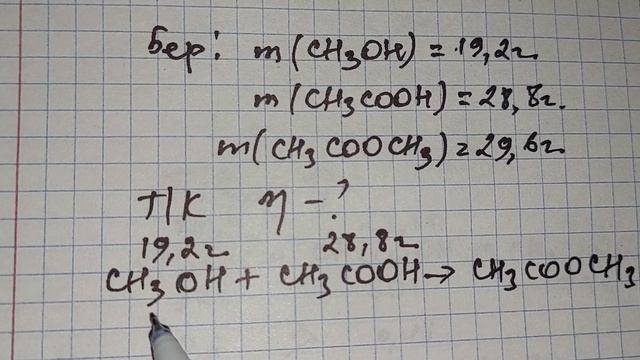 Бер: m(CH3OH) = 19,2г.
m(CH3COOH) = 28,8г.
m(CH3COOCH3) = 29,6г
Т/К η - ?
19,2г 28,8г
CH3OH + CH3COOH → CH3COOCH3